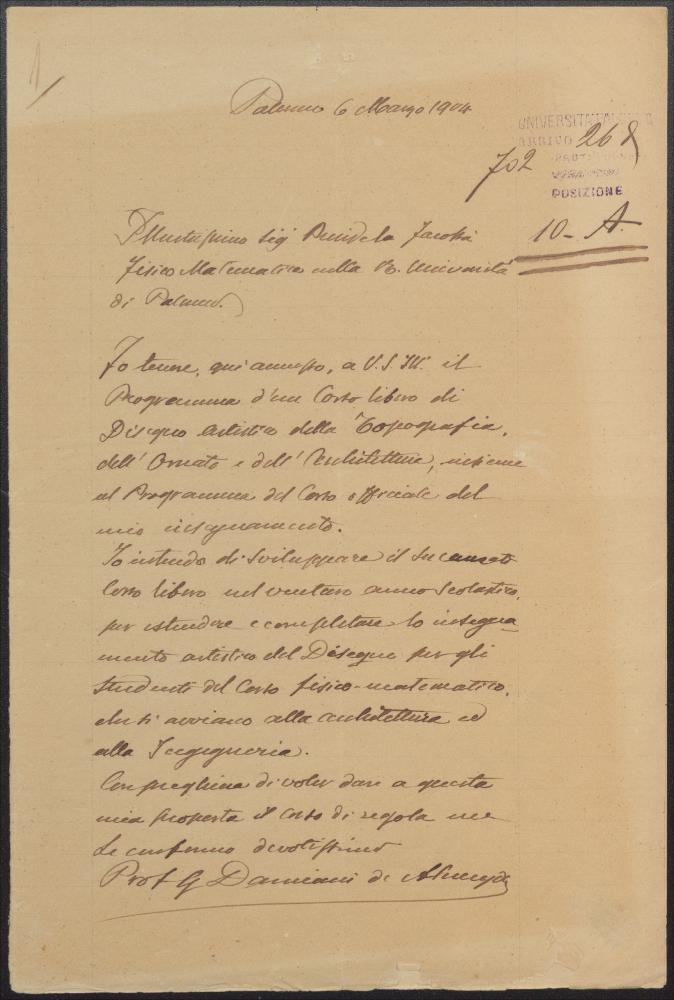 Palermo 6 Marzo 1904
UNIVERSITÀ
ARRIVO 268
702
POSIZIONE
10 - A.
Illustrissimo Sig
Fisico Matematica nella R. Università
di Palermo.
qui annesso, a V. S. Ill. il
Programma d'un Corso libero di
Disegno Artistico della Topografia,
dell' Ornato e dell' Architettura, insieme
al Programma del Corso officiale del
mio insegnamento.
Io intendo di sviluppare il
Corso libero nel venturo anno Scolastico,
per estendere e completare lo insegna
mento artistico del Disegno per gli
Studenti del Corso fisico-matematico,
che si avviano alla architettura ed
alla Ingegneria.
Con preghiera di voler dare a questa
mia proposta il corso di regola me
Le confermo devotissimo
Prof G Damiani de Almeyda